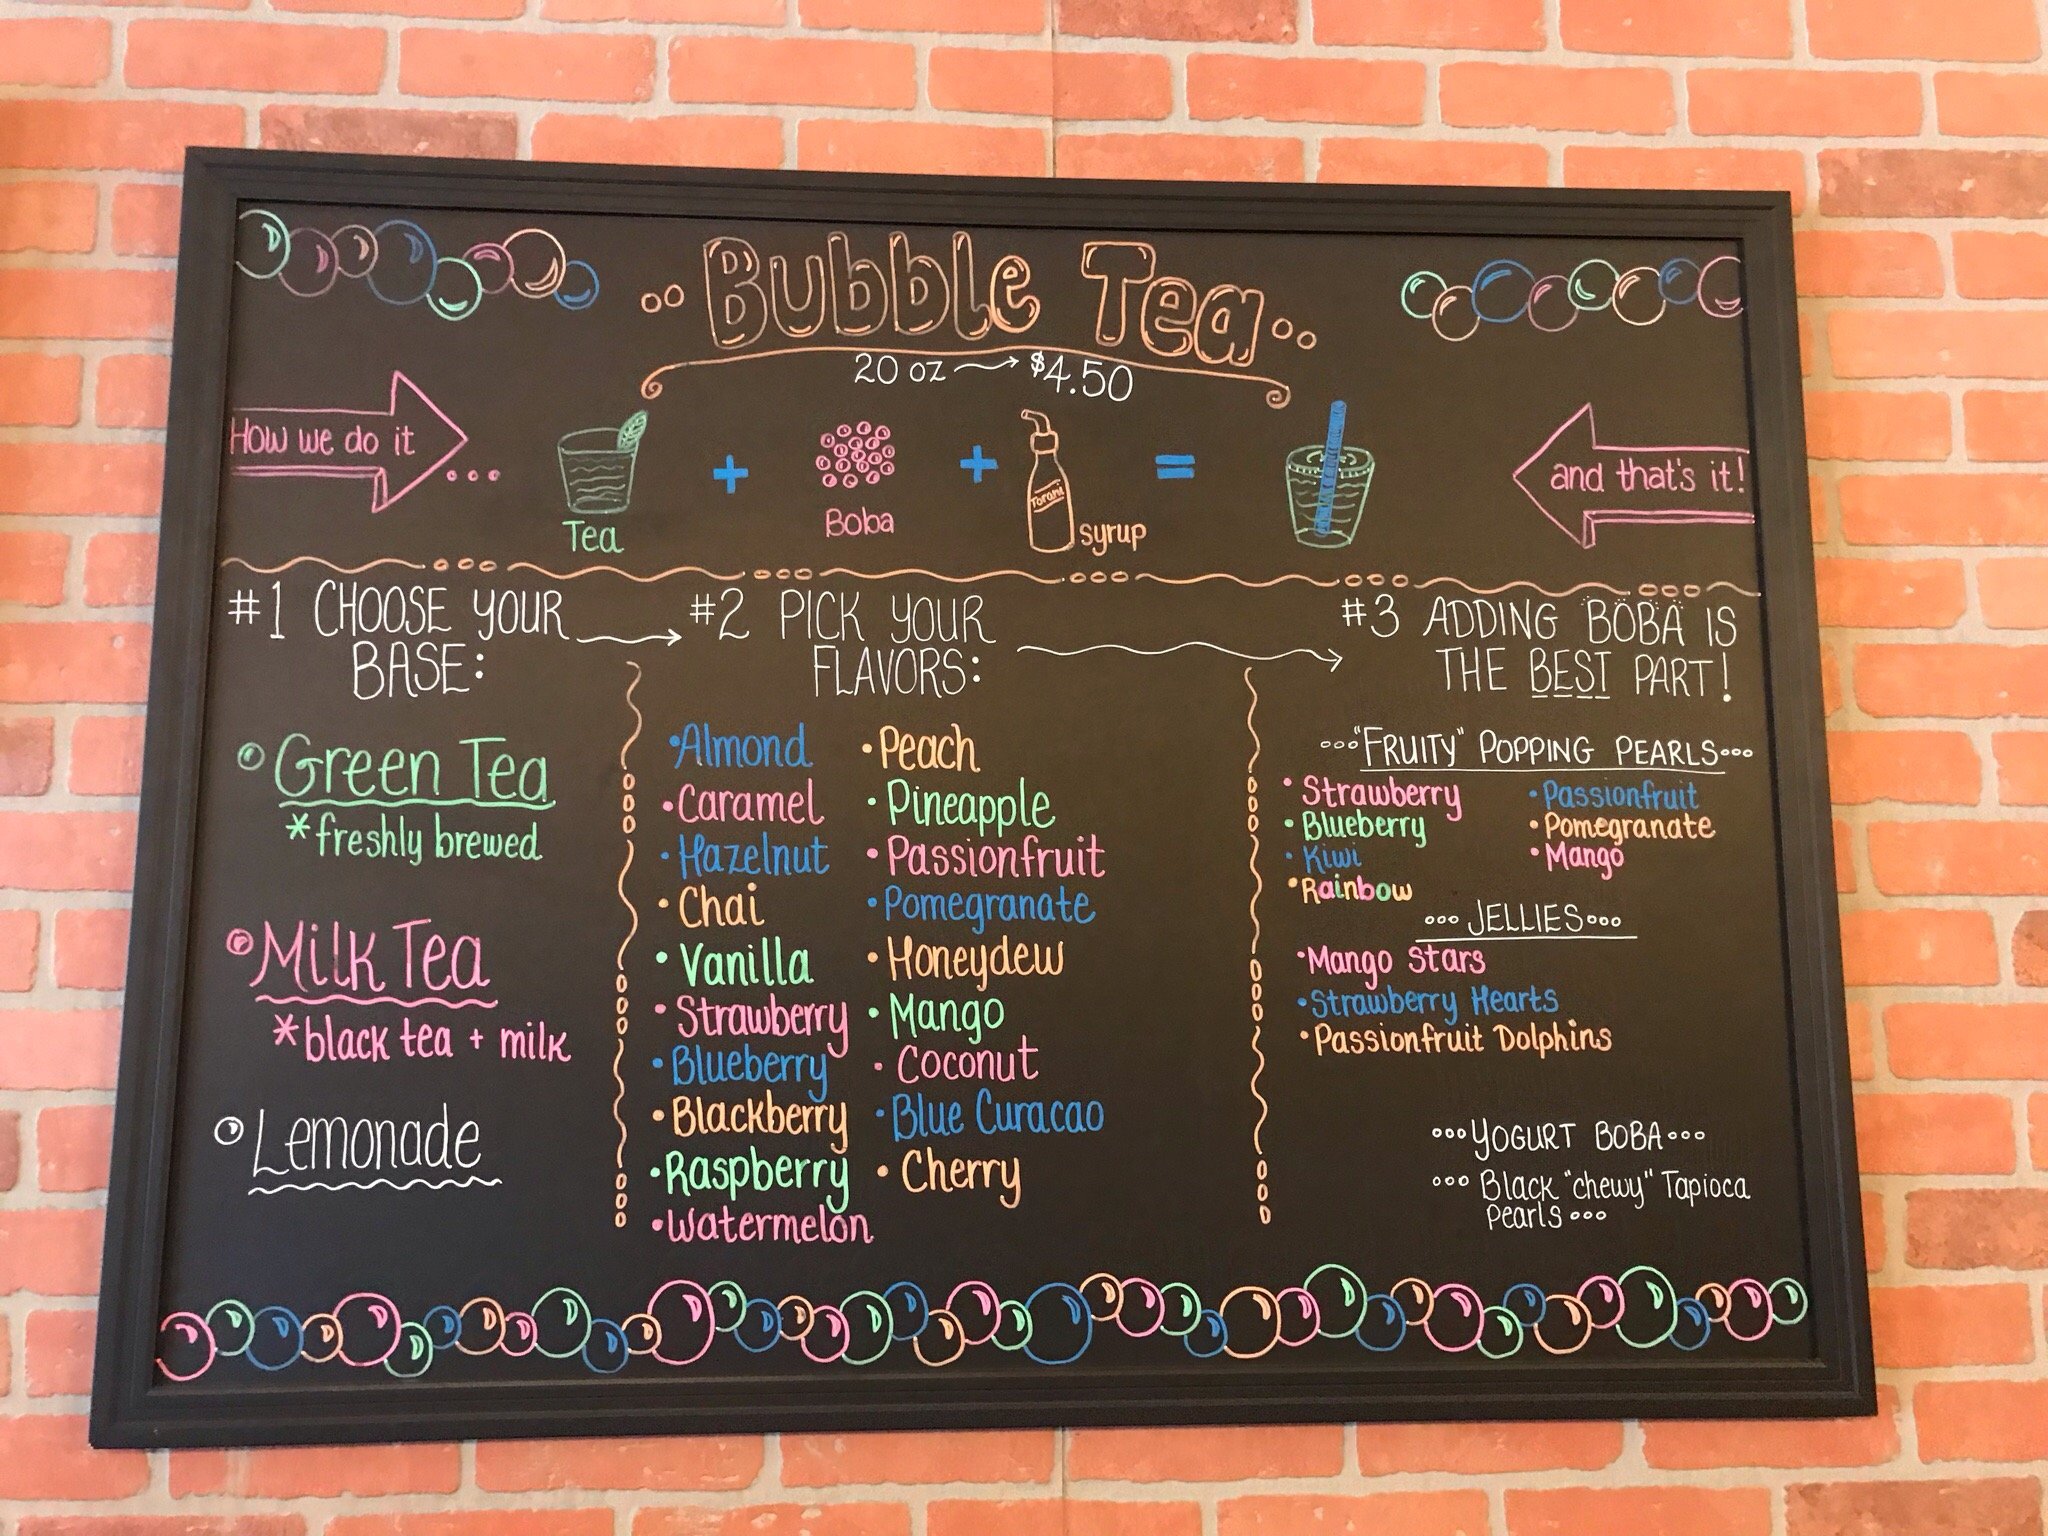 Bubble Tea
20 oz → $4.50
How we do it ...
Tea
+
Boba
+
Torani
syrup
=
and that's it!
#1 CHOOSE YOUR
BASE:
• Green Tea
*freshly brewed
• Milk Tea
*black tea + milk
• Lemonade
#2 PICK YOUR
FLAVORS:
• Almond
• Caramel
• Hazelnut
• Chai
• Vanilla
• Strawberry
• Blueberry
• Blackberry
• Raspberry
• Watermelon
• Peach
• Pineapple
• Passionfruit
• Pomegranate
• Honeydew
• Mango
• Coconut
• Blue Curacao
• Cherry
#3 ADDING BOBA IS
THE BEST PART!
"FRUITY" POPPING PEARLS
• Strawberry
• Blueberry
• Kiwi
• Rainbow
• Passionfruit
• Pomegranate
• Mango
JELLIES
• Mango Stars
• Strawberry Hearts
• Passionfruit Dolphins
YOGURT BOBA
Black "chewy" Tapioca
Pearls